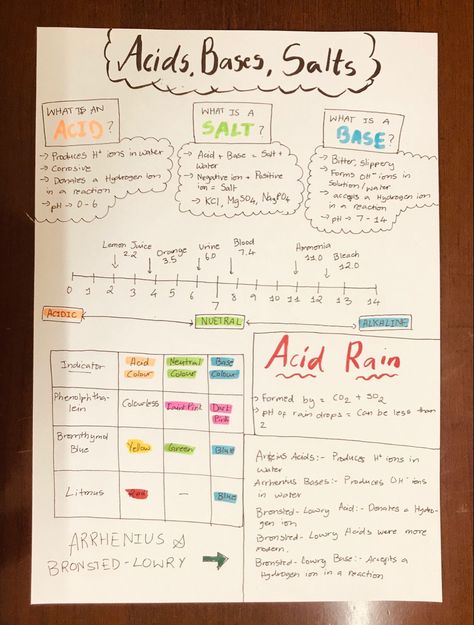 Acids, Bases, Salts
WHAT IS AN
ACID?
→ Produces H⁺ ions in water
→ Corrosive
→ Donates a Hydrogen ion
in a reaction
→ pH → 0-6
WHAT IS A
SALT?
→ Acid + Base = Salt +
Water
→ Negative ion + Positive
ion = Salt
→ KCl, MgSO₄, Na₃PO₄
WHAT IS A
BASE?
→ Bitter, slippery
→ Forms OH⁻ ions in
Solution/water
→ accepts a Hydrogen ion
in a reaction
→ pH → 7-14
Lemon Juice
2.2
Orange
3.5
Urine
6.0
Blood
7.4
Ammonia
11.0
Bleach
12.0
0 1 2 3 4 5 6 7 8 9 10 11 12 13 14
ACIDIC
NUETRAL
ALKALINE
Indicator
Acid
Colour
Neutral
Colour
Base
Colour
Phenolphtha-
lein
Colourless
Faint Pink
Dark
Pink
Bromthymol
Blue
Yellow
Green
Blue
Litmus
Red
–
Blue
ARRHENIUS
BRONSTED-LOWRY
Acid Rain
→ Formed by = CO₂ + SO₂
→ pH of rain drops = Can be less than
2
Acids:- Produces H⁺ ions in
water
Arrhenius Bases:- Produces OH⁻ ions
in water
Bronsted-Lowry Acid:- Donates a Hydro-
gen ion
Bronsted-Lowry Acids were more
modern.
Bronsted-Lowry Base:- Accepts a
Hydrogen ion in a reaction